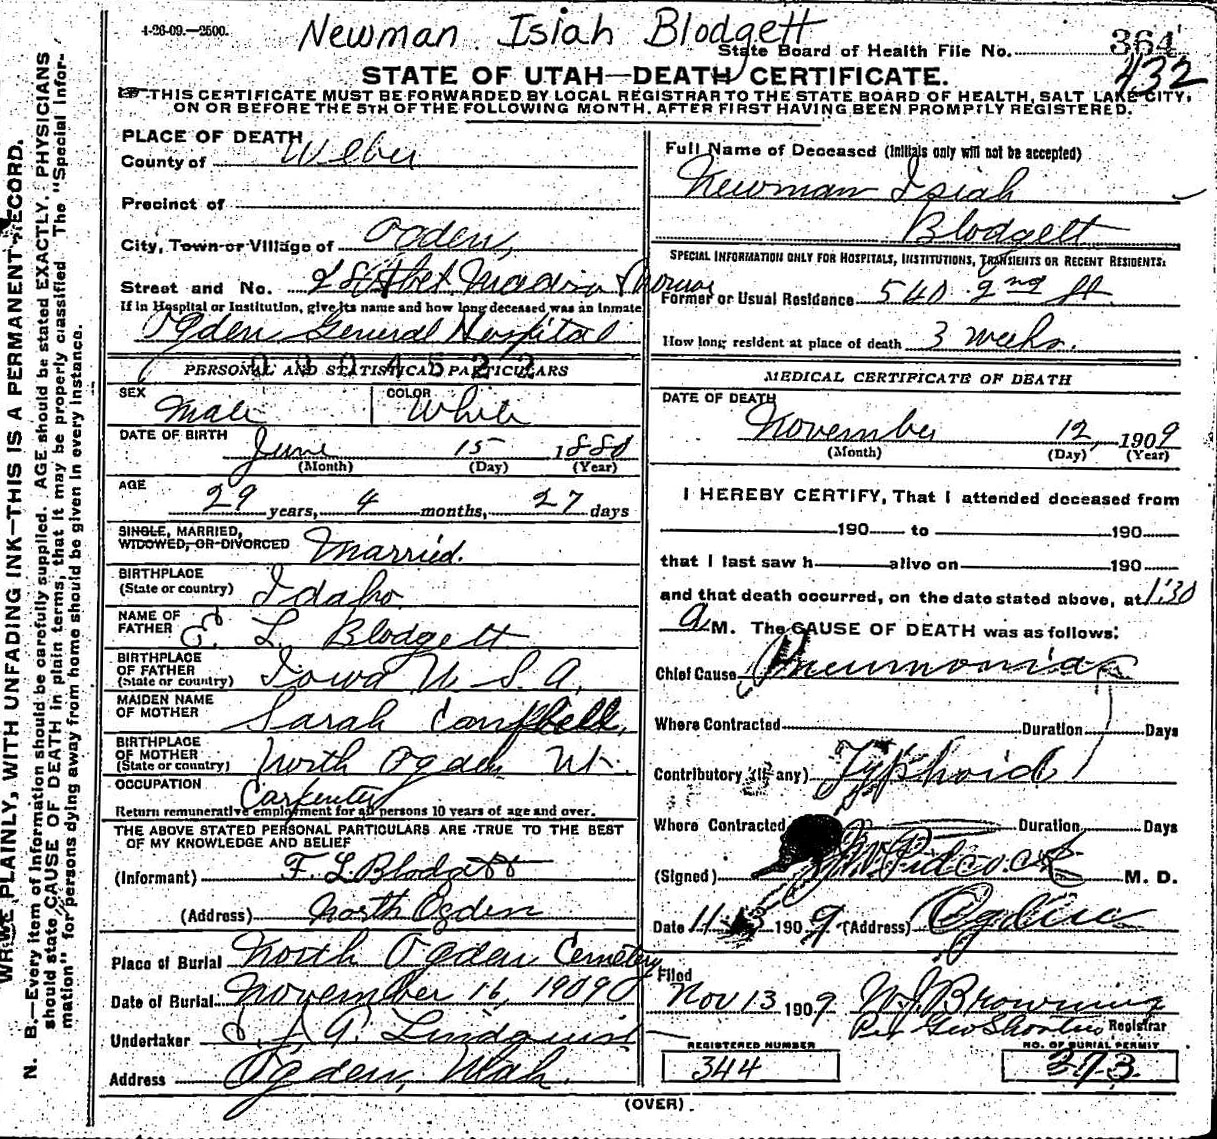 4-26-09.—2500.
Newman Isiah Blodgett
State Board of Health File No. 364
432
STATE OF UTAH—DEATH CERTIFICATE.
THIS CERTIFICATE MUST BE FORWARDED BY LOCAL REGISTRAR TO THE STATE BOARD OF HEALTH, SALT LAKE CITY,
ON OR BEFORE THE 5TH OF THE FOLLOWING MONTH, AFTER FIRST HAVING BEEN PROMPTLY REGISTERED.
WRITE PLAINLY, WITH UNFADING INK—THIS IS A PERMANENT RECORD.
N. B.—Every item of information should be carefully supplied. AGE should be stated EXACTLY. PHYSICIANS
should state CAUSE OF DEATH in plain terms, that it may be properly classified. The "Special Infor-
mation" for persons dying away from home should be given in every instance.
PLACE OF DEATH
County of Weber
Precinct of
City, Town or Village of Ogden,
Street and No.
If in Hospital or Institution, give its name and how long deceased was an inmate
Ogden General Hospital
0904522
PERSONAL AND STATISTICAL PARTICULARS
SEX Male COLOR White
DATE OF BIRTH June 15 1880
(Month) (Day) (Year)
AGE
29 years, 4 months, 27 days
SINGLE, MARRIED,
WIDOWED, OR DIVORCED Married.
BIRTHPLACE
(State or country) Idaho
NAME OF
FATHER L. Blodgett
BIRTHPLACE
OF FATHER
(State or country) Iowa U. S. A.
MAIDEN NAME
OF MOTHER Sarah Campbell,
BIRTHPLACE
OF MOTHER
(State or country) North Ogden Ut.
OCCUPATION
Carpenter
Return remunerative employment for all persons 10 years of age and over.
THE ABOVE STATED PERSONAL PARTICULARS ARE TRUE TO THE BEST
OF MY KNOWLEDGE AND BELIEF
(Informant) F. L. Blodgett
(Address) North Ogden
Place of Burial North Ogden Cemetery
Date of Burial November 16, 1909 190
Undertaker Lindquist
Address Ogden, Utah.
Full Name of Deceased (Initials only will not be accepted)
Newman Isiah
Blodgett
SPECIAL INFORMATION ONLY FOR HOSPITALS, INSTITUTIONS, TRANSIENTS OR RECENT RESIDENTS:
Former or Usual Residence 540 2nd St.
How long resident at place of death 3 weeks.
MEDICAL CERTIFICATE OF DEATH
DATE OF DEATH
November 12, 1909
(Month) (Day) (Year)
I HEREBY CERTIFY, That I attended deceased from
190 to 190
that I last saw h alive on 190
and that death occurred, on the date stated above, at 1:30
a M. The CAUSE OF DEATH was as follows:
Chief Cause Pneumonia
Where Contracted Duration Days
Contributory (if any) Typhoid
Where Contracted Duration Days
(Signed) M. D.
Date 11 1909 (Address) Ogden
Filed
Nov 13 1909 W. J. Browning
Registrar
REGISTERED NUMBER
344
NO. OF BURIAL PERMIT
373
(OVER)